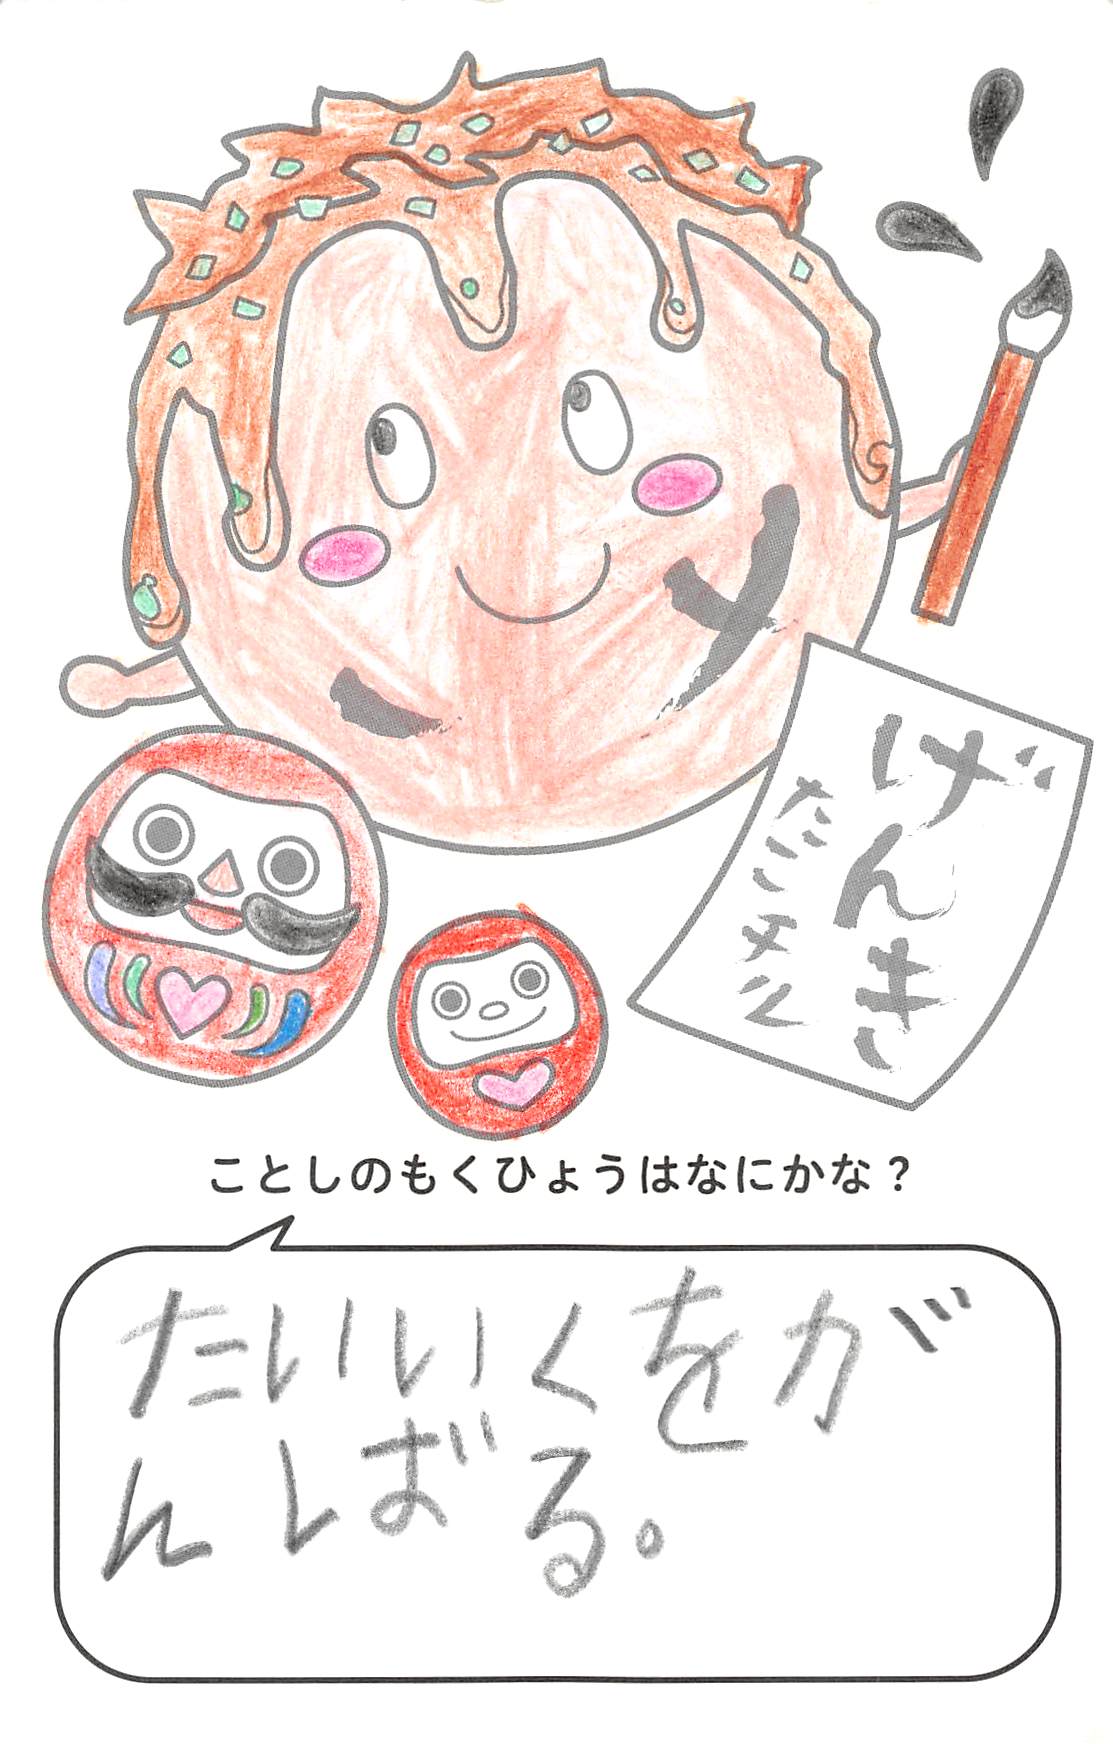 げんき
たこメン
ことしのもくひょうはなにかな？
たいいくをが
んばる。